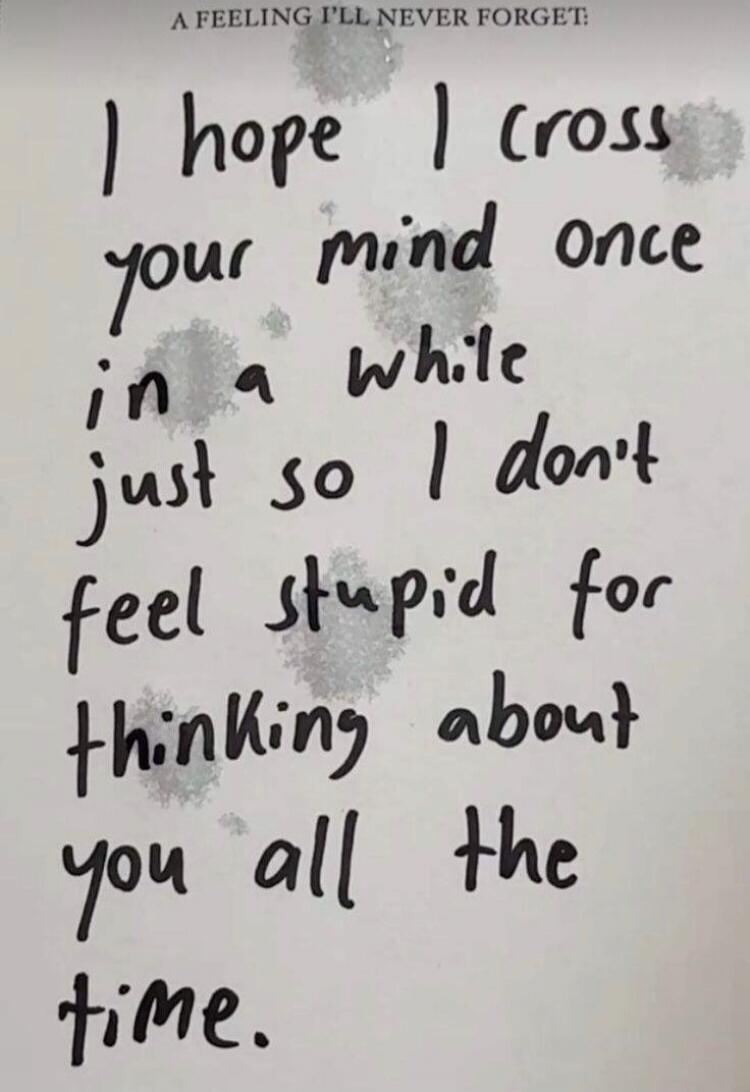 A FEELING I'LL NEVER FORGET:
I hope I cross
your mind once
in a while
just so I don't
feel stupid for
thinking about
you all the
time.